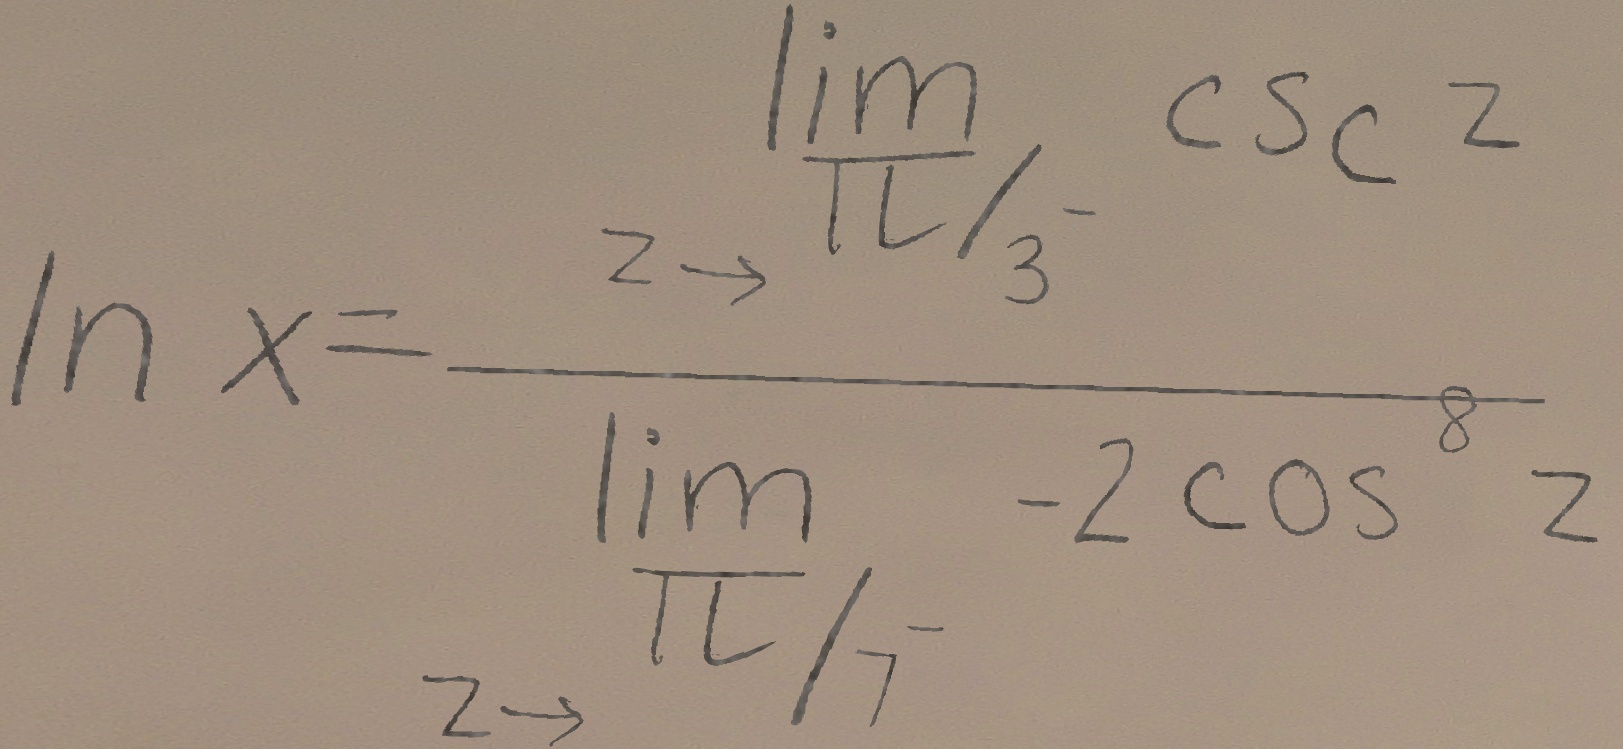 ln x = \frac{\lim_{z \to \pi/3^-} \csc z}{\lim_{z \to \pi/7^-} -2 \cos^8 z}